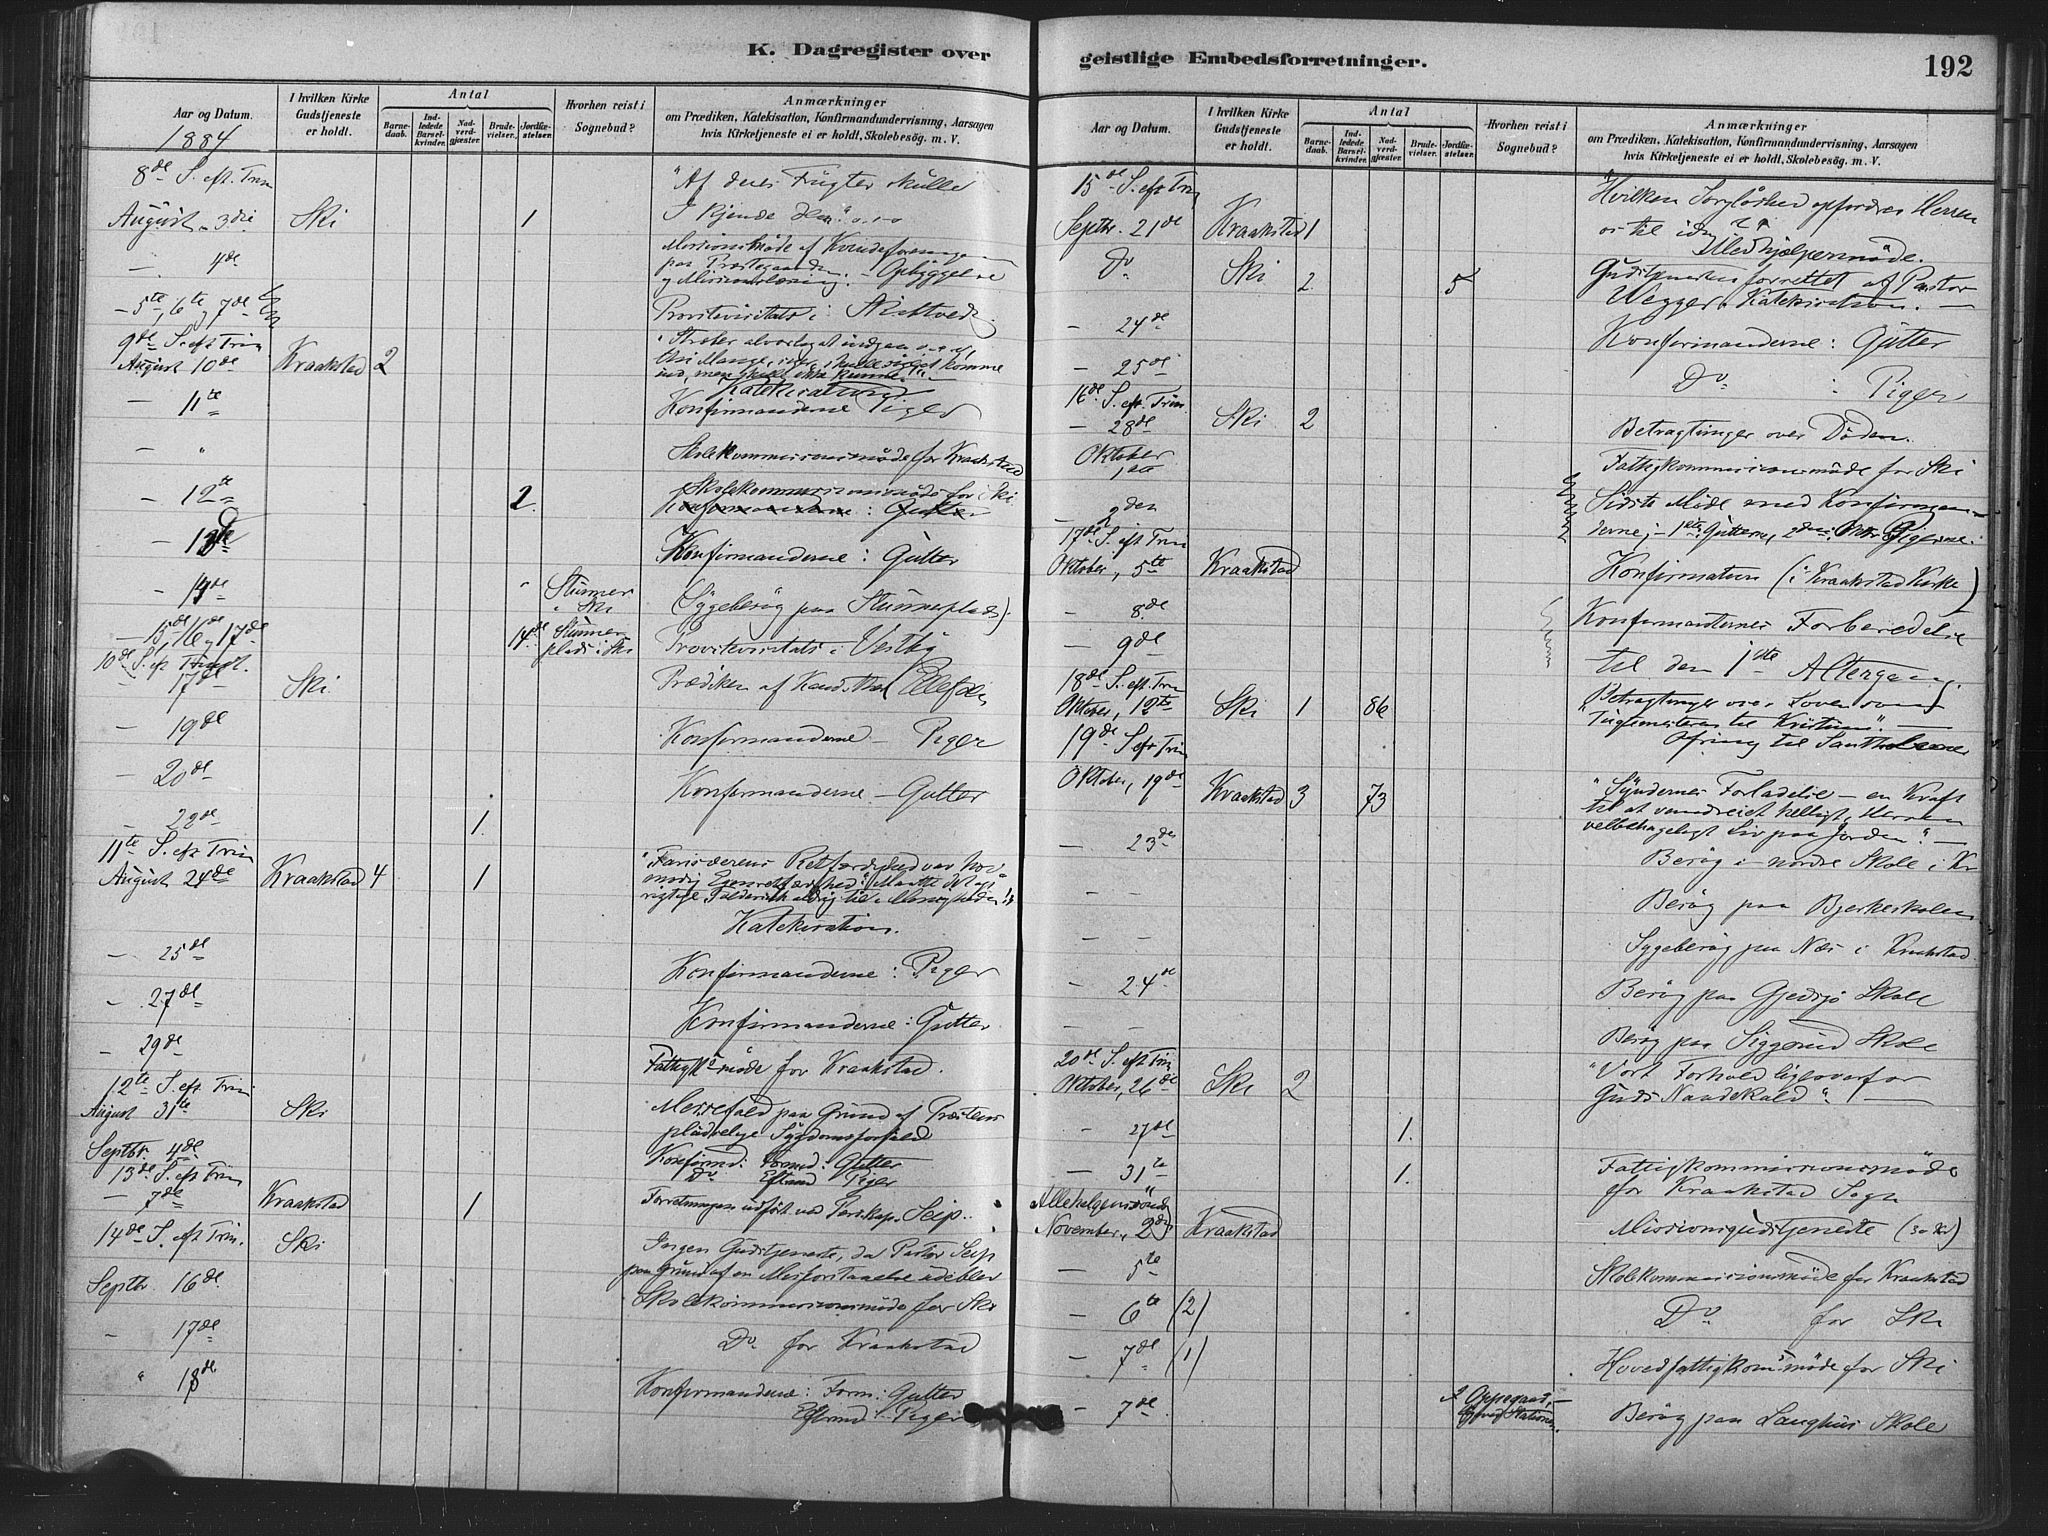 K. Dagregister over
Aar og Datum.
I hvilken Kirke Gudstjeneste er holdt.
Antal
Barnedaab.
Indledede Barselkvinder.
Nadverdgjæster.
Brudevielser.
Jordfæstelser.
Hvorhen reist i Sognebud?
Anmærkninger
om Prædiken, Katekisation, Konfirmandundervisning, Aarsagen
hvis Kirketjeneste ei er holdt, Skolebesøg. m. V.
1884
8de S. eft. Trin
"Af deres Frugter skulle
August 3die Ski 1 I kjende dem"
- 4de Missionsmøde af Kvindeforeningen
paa Præstegaarden. - Opbyggelse
og Missionslæsning.
- 5te, 6te og 7de Provstevisitats i
9de S. eft Trin
August 10de Kraakstad 2
ind, men skulle ikke kunne."
Katekisation
- 11te Konfirmanderne Piger
- " Skolekommissionsmøde for Kraakstad
- 12te 2. Skolekommissionsmøde for Ski
Konfirmanderne: Gutter
- 13de Konfirmanderne: Gutter
- 14de Stunner i Ski (Sygebesøg paa Stunnerplads).
- 15de, 16de og 17de 14de Stunnerplads i Ski Provstevisitats i Vestby
10de S. eft Trin
17de Ski Prædiken af Kand. theol Ellefsen
- 19de Konfirmanderne - Piger
- 20de Konfirmanderne - Gutter
- 22de 1.
11te S. eft Trin
August 24de Kraakstad 4 1 "Farisæernes Retfærdighed var hovmodig
Katekisation.
- 25de Konfirmanderne: Piger
- 27de Konfirmanderne: Gutter
- 29de Fattigk. møde for Kraakstad.
12te S. eft. Trin
August 31te Ski Messefald paa Grund af Præstens
pludselige Sygdomsforfald
Septbr. 4de Konfirmd: Formd: Gutter
13de S. eft Trin Do Eftmd Piger
- 7de Kraakstad 1 Forretningen udført ved Perskap. Seip.
14de S. eft Trin. Ski Ingen Gudstjeneste, da Pastor Seip
paa Grund af en Misforstaaelse udeblev
Septbr 16de Skolekommissionsmøde for Ski
- 17de Do for Kraakstad
" 18de Konfirmanderne: Form: Gutter
Eftmd: Piger
geistlige Embedsforretninger.
192
Aar og Datum.
I hvilken Kirke Gudstjeneste er holdt.
Antal
Barnedaab.
Indledede Barselkvinder.
Nadverdgjæster.
Brudevielser.
Jordfæstelser.
Hvorhen reist i Sognebud?
Anmærkninger
om Prædiken, Katekisation, Konfirmandundervisning, Aarsagen
hvis Kirketjeneste ei er holdt, Skolebesøg. m. V.
15de S. eft Trin Hvilken Sorgløshed opfordrer Herren
Septbr. 21de Kraakstad 1 os til
Medhjælpermøde.
Do Ski 2 5 Gudstjenesten forrettet af Pastor
Wegger. Katekisation. -
- 24de Konfirmanderne: Gutter
- 25de Do : Piger
16de S. eft. Trin
- 28de Ski 2 Betragtninger over Døden.
Oktober 1ste Fattigkommissionsmøde for Ski
- 2den Sidste Møde med Konfirmanderne; - 1ste Gutterne, 2den Oktbr. Pigerne.
17de S. eft Trin
Oktober, 5te Kraakstad Konfirmation (i Kraakstad Kirke)
- 8de Konfirmanternes Forberedelse
- 9de til den 1ste Altergang.
18de S. eft. Trin
Oktober, 12te Ski 1 86 Betragtninger over Loven som
"Tugtemesteren til Kristum".
19de S. eft Trin Ofring til Santhalerne
Oktober, 19de Kraakstad 3 73 "Syndernes Forladelse - en Kraft
til at vandre et helligt, Herren
velbehageligt Liv paa Jorden". -
- 23de Besøg i nordre Skole i Kr
- - Besøg paa Bjerkeskolen
- - Sygebesøg paa Næs i Kraakstad.
- 24de Besøg paa Gjedsjø Skole
- - Besøg paa Siggerud Skole
20de S. eft Trin
Oktober, 26de Ski 2 "Vort Forhold ligeoverfor
Guds Naadekald". -
- 27de 1.
- 31te 1. Fattigkommissionsmøde
for Kraakstad Sogn
Allehelgenssønd.
November, 2den Kraakstad Missionsgudstjeneste
- 5te Skolekommissionsmøde for Kraakstad
- 6te (2) Do for Ski
- 7de (1) Hovedfattigkom:møde for Ski
- 7de Oppegaard Besøg paa Langhus Skole